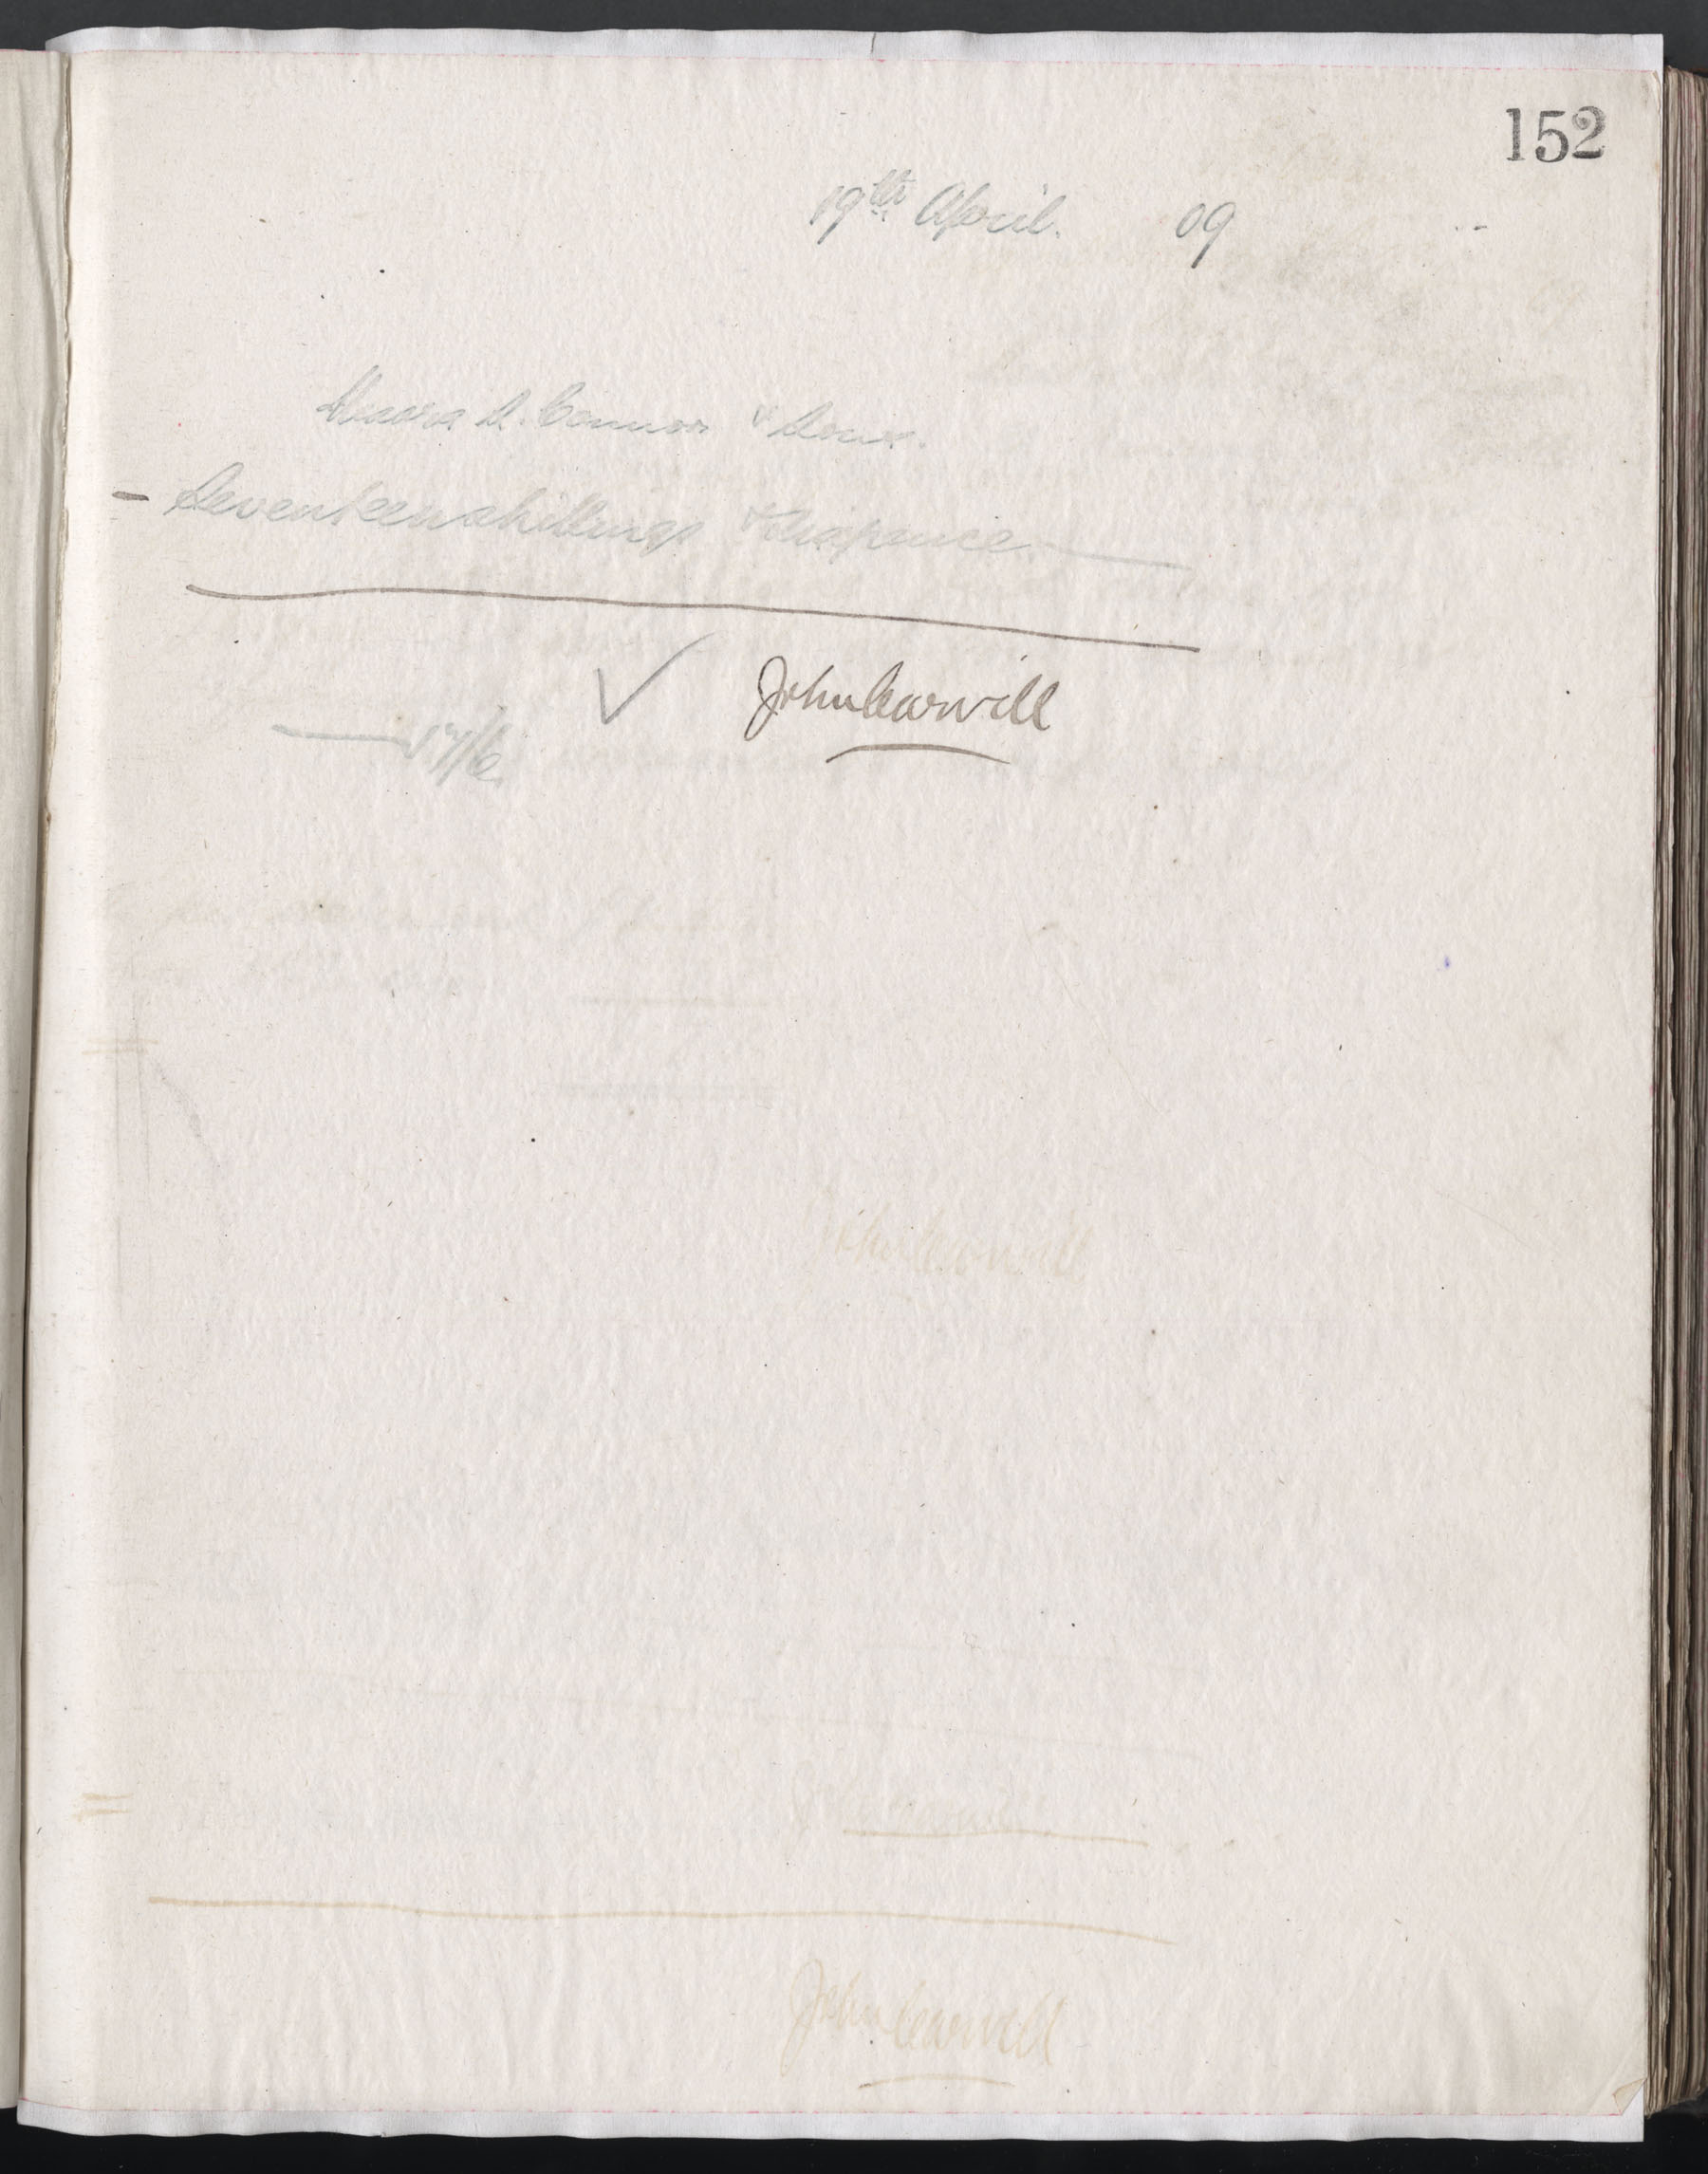 152
19th April. 09
Messrs S. Connor & Sons.
Seventeen shillings & sixpence
John Carvill
17/6
John Carvill
John Carvill